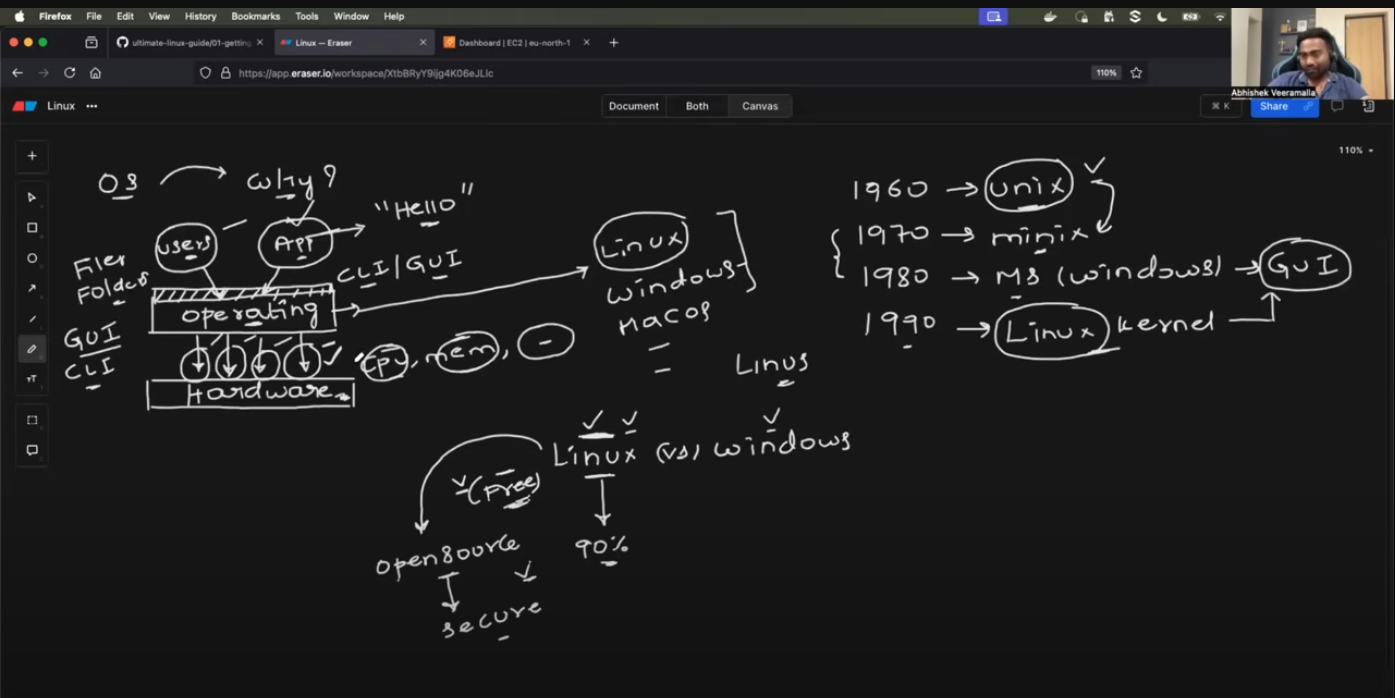 Firefox File Edit View History Bookmarks Tools Window Help
ultimate-linux-guide/01-getting
Linux — Eraser
Dashboard | EC2 | eu-north-1
https://app.eraser.io/workspace/XtbBRyY9ijg4K06eJLlc
110%
Abhishek Veeramalla
Linux
Document Both Canvas
⌘ K
Share
110%
OS → Why?
users
App → "Hello"
Files
Folders
CLI/GUI
operating →
GUI
CLI
cpu, mem, -
Hardware
Linux
windows
MacOS
Linus
1960 → unix
1970 → minix
1980 → MS (windows) → GUI
1990 → Linux kernel
Linux (vs) windows
(Free)
opensource
90%
secure